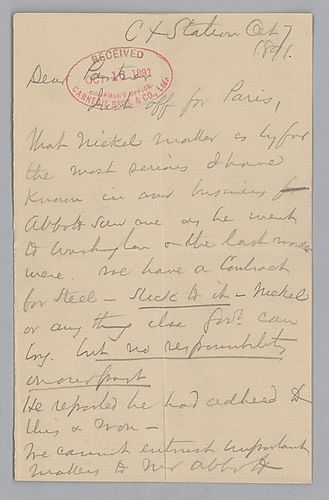 C X Station Oct 7
1891.
RECEIVED
OCT 16 1891
CHAIRMAN'S OFFICE
CARNEGIE BROS. & CO., Ltd.
Dear
off for Paris,
That Nickel matter is by far
the most serious I have
Known in our business
Abbott saw me as he went
to Washington & the last words
were we have a Contract
for Steel – Stick to it – Nickel
or any thing else Govt. can
try. but no responsibility
on our part
He reported he had adhered to
this & won –
We cannot entrust important
matters to Mr Abbott